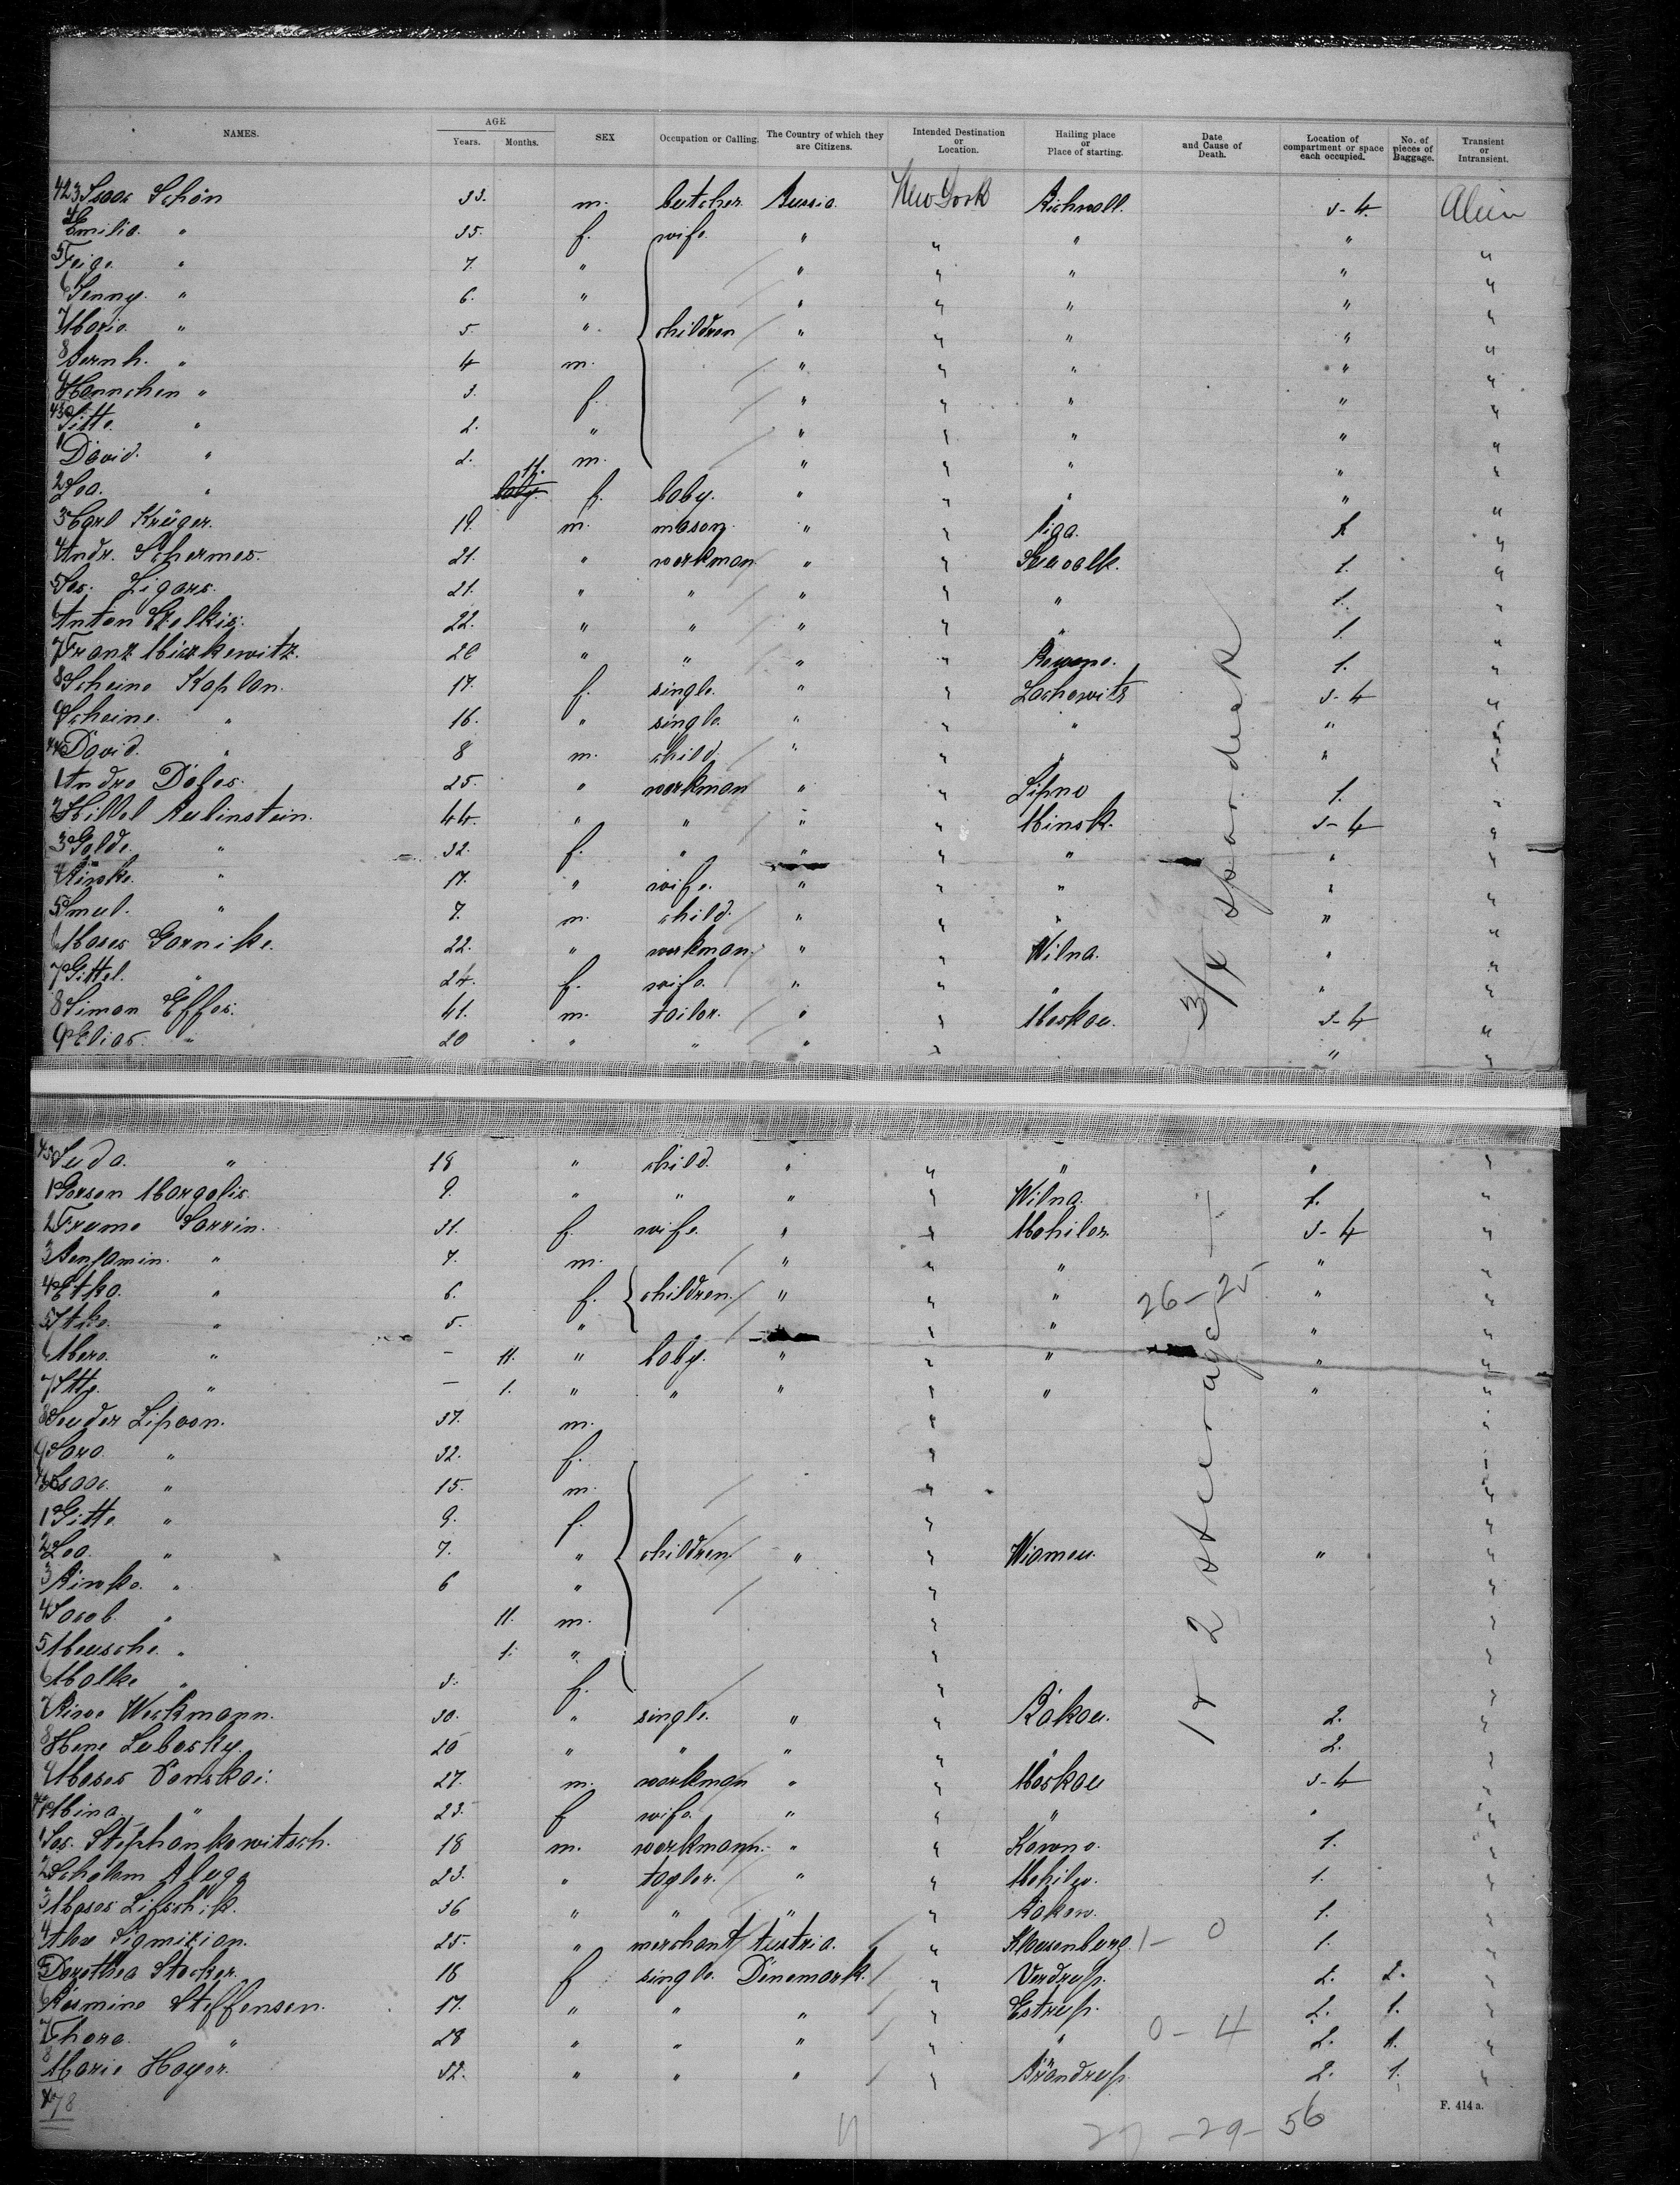 NAMES. AGE Years. Months. SEX Occupation or Calling. The Country of which they are Citizens. Intended Destination or Location. Hailing place or Place of starting. Date and Cause of Death. Location of compartment or space each occupied. No. of pieces of Baggage. Transient or Intransient.
423 Isaac Schön 33. m. butcher Russia New York 3-4. Alien
4 Emilia " 35. f. wife " " " " "
5 Feige " 7. " " " " " "
6 Jenny " 6. " " " " " "
7 Maria " 5. " children " " " " "
8 Bernh. " 4 m. " " " " "
9 Hannchen " 3. f. " " " " "
430 Gitte " 2. " " " " " "
1 David " 2. m. " " " " "
2 Lea. " 11. f. baby. " " " " "
3 Carl Krüger. 19. m. mason. " " Riga. 1. "
4 Andr. Schermes. 21. " workman " " Suwalk. 1. "
5 Jos. Ligars. 21. " " " " " 1. "
6 Anton 22. " " " " " 1. "
7 Franz Mickewitz. 20 " " " " 1. "
8 Scheine Kaplan. 17. f. single. " " Lachowitz 3-4 "
9 Scheine. " 16. " single. " " " " "
440 David. " 8 m. child. " " " " "
1 Andre Doles. 25. " workman " " Lipno 1. "
2 Hillel Rubinstein. 44. " " " " Minsk. 3-4 "
3 Golde. " 32. f. " " " " " "
4 Riwke. " 17. " wife. " " " " "
5 Smul. " 7. m. child. " " " " "
6 Moses Gornike. 22. " workman. " " Wilna. " "
7 Gittel. " 24. f. wife. " " " " "
8 Simon Effos. 41. m. tailor. " " Moskau. 3-4 "
9 Elias. " 20 " " " " " "
450 Juda. " 18 " child. " " " " "
1 Gerson Margolis. 9. " " " " Wilna. 1. "
2 Frume Sorrin. 31. f. wife. " " Mohilow. 3-4 "
3 Benjamin. " 7. m. " " " " "
4 Etka. " 6. f. children. " " " 26-25 " "
5 Itke. " 5. " " " " "
6 Mera. " - 11. " baby. " " " " "
7 " - 1. " " " " " " "
8 Sender Lipson. 37. m. " "
9 Sara. " 32. f. " "
460 Isaac. " 15. m. " "
1 Gitte " 9. f. " "
2 Lea. " 7. " children " " " "
3 Riwke. " 6 " " "
4 Jacob. " 11. m. " "
5 Mousche. " 1. " " "
6 Malke " 3. f. " "
7 Riwe Werkmann. 30. " single. " " Rakau. 2. "
8 Hene Lubosky. 20 " " " " " 2. "
9 Moses Donskoi. 27. m. workman " " Moskau 3-4 "
470 Mina " 23. f wife. " " " " "
1 Jos. Stephankowitsch. 18 m. workmann. " " Kowno. 1. "
2 Scholem 23. " taylor. " " Mohilew. 1. "
3 Moses Lifschik. 36 " " " " Rakow. 1. "
4 Alex 25. " merchant Austria. " Klausenburg. 1-0 1. "
5 Dorothea Stocker. 18 f single. Dänemark. " 2. 2. "
6 Rosmine Steffensen. 17. " " " " Estrup. 2. 1. "
7 Thora. " 28 " " " " " 0-4 2. 1. "
8 Marie Hoyer. 52. " " " " Brändrup. 2. 1. "
478
3/4 spar deck
17 2 steerage
29-56
F. 414 a.